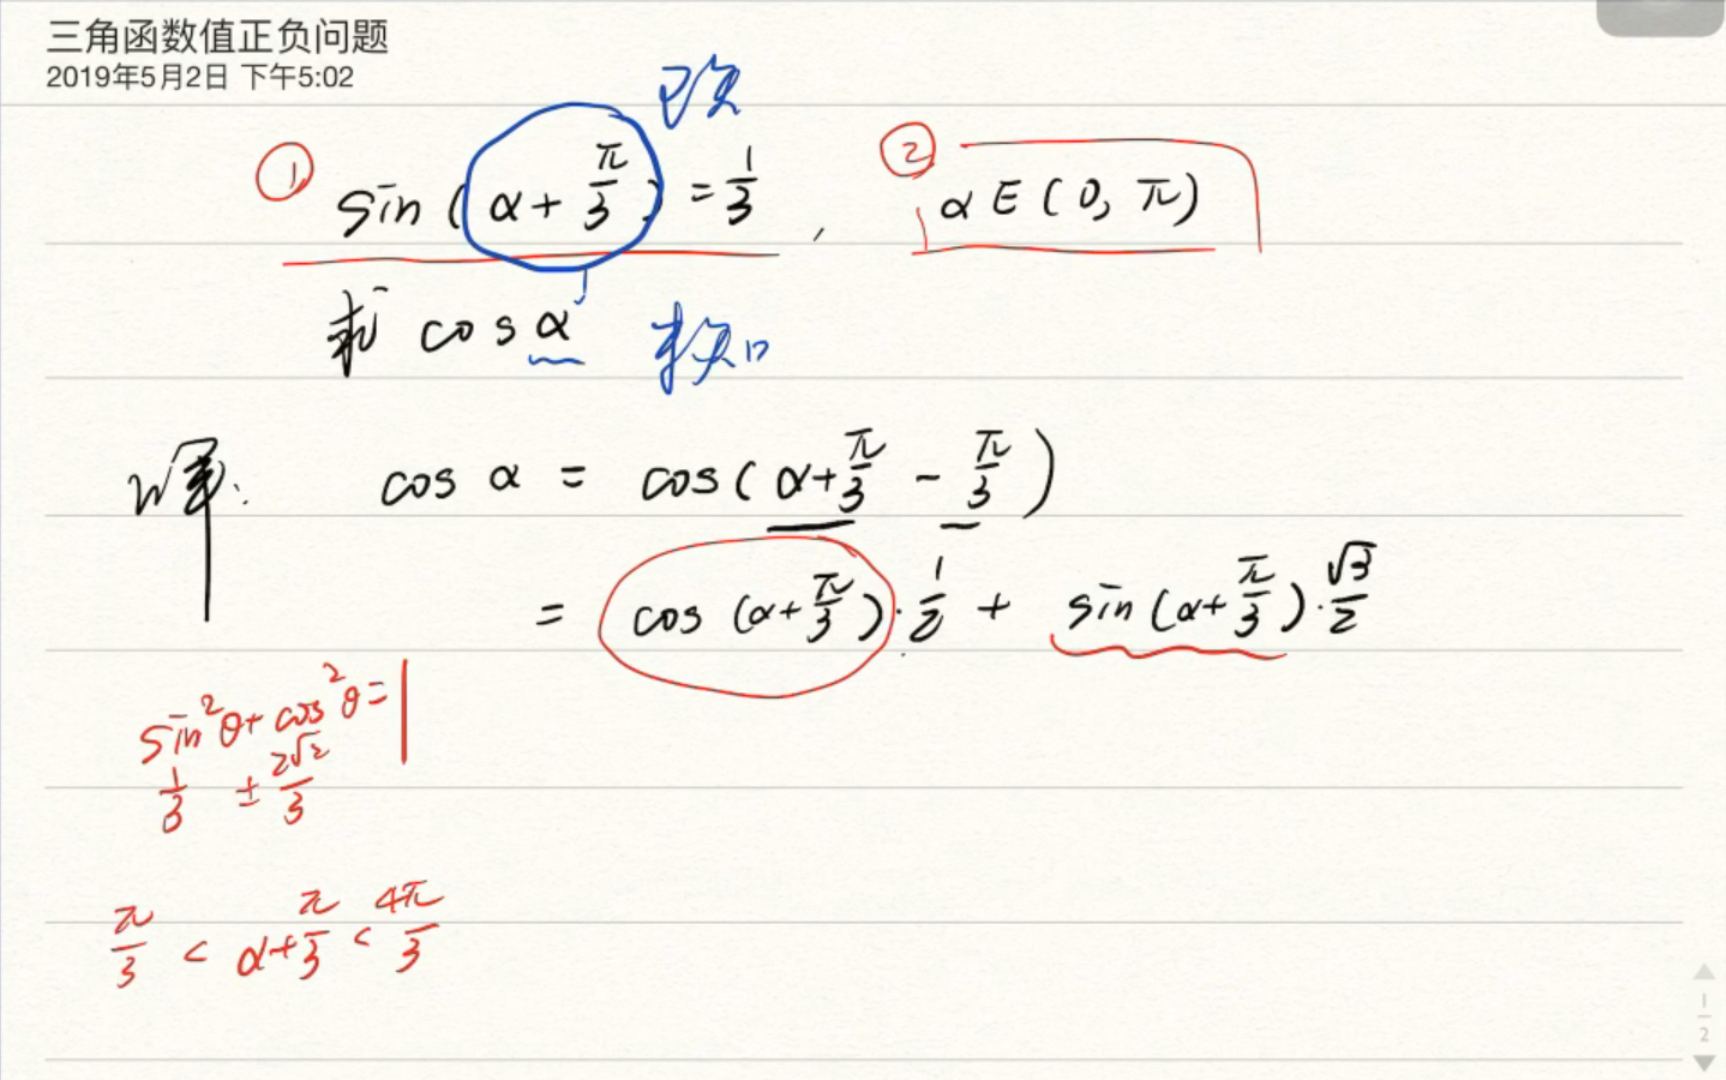 三角函数值正负问题
2019年5月2日 下午5:02
已知
① sin(α+π/3)=1/3, ② α∈(0, π)
求 cosα 未知
解: cos α = cos(α+π/3 - π/3)
= cos(α+π/3)·1/2 + sin(α+π/3)·√3/2
sin²θ+cos²θ=1
1/3 ±2√2/3
π/3 < α+π/3 < 4π/3
1/2